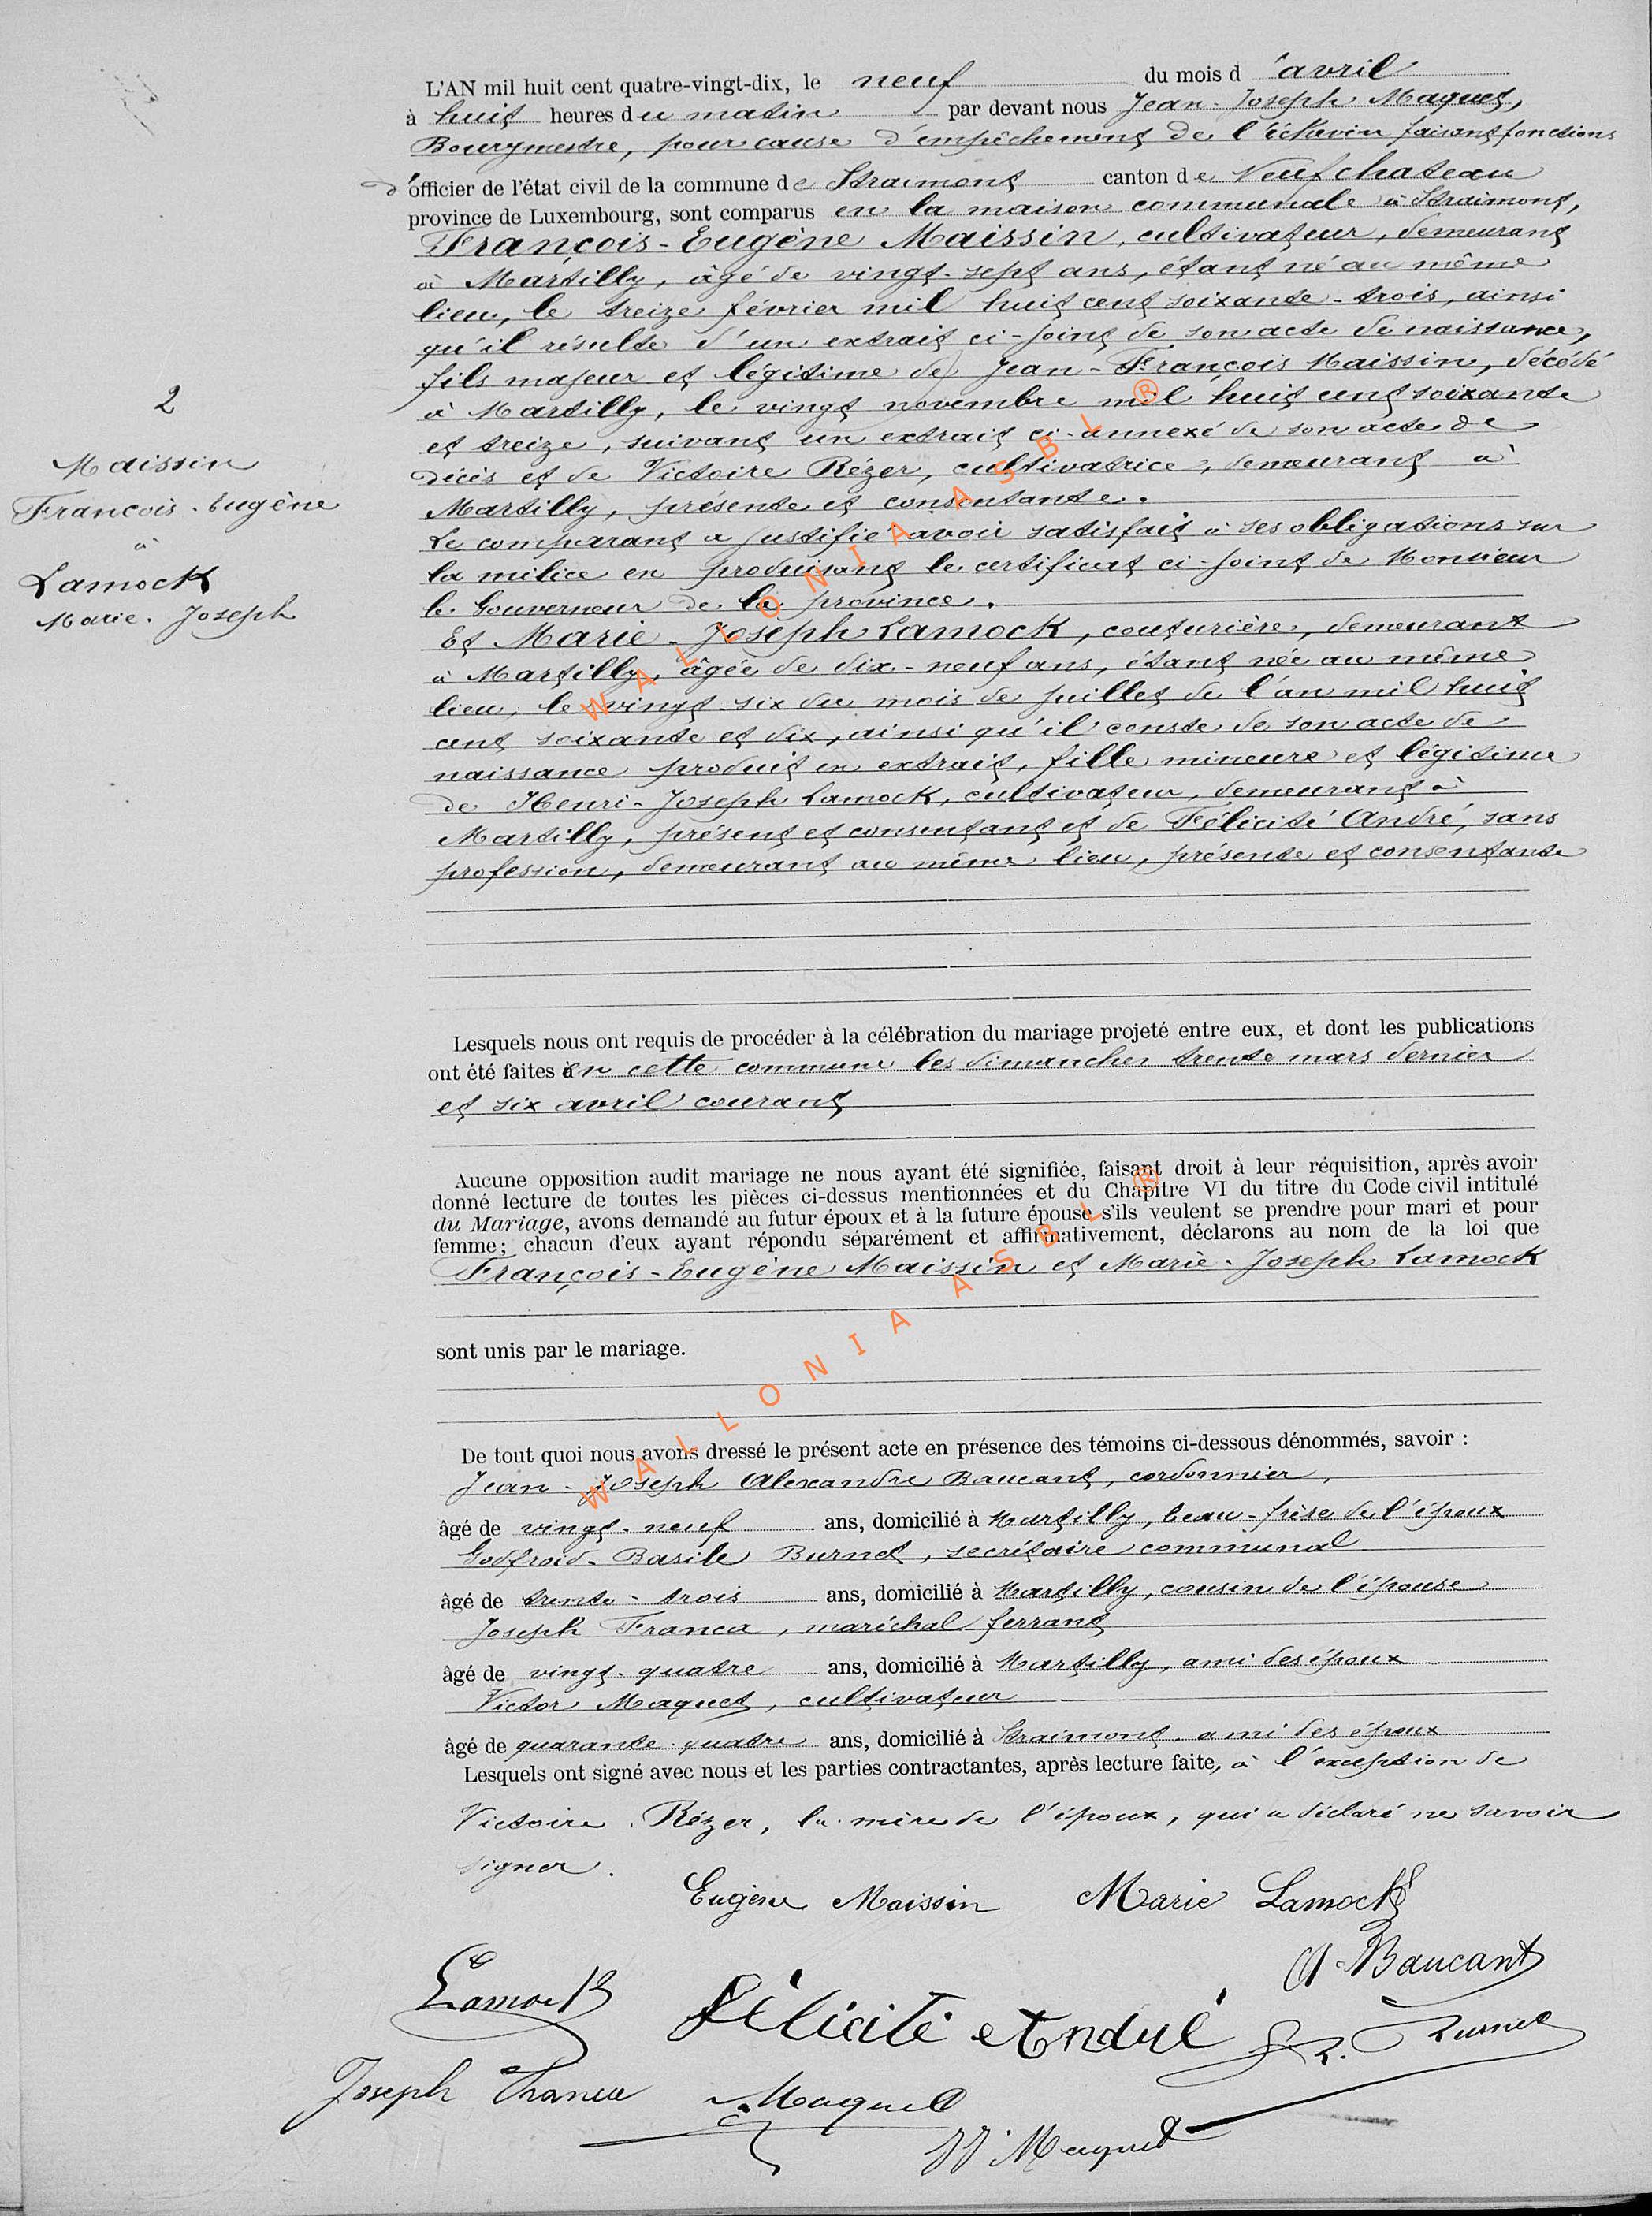 L'AN mil huit cent quatre-vingt-dix, le neuf du mois d'avril
à huit heures du matin par devant nous Jean-Joseph Maquet,
Bourgmestre, pour cause d'empêchement de l'échevin faisant fonctions
d'officier de l'état civil de la commune de Straimont canton de Neufchateau
province de Luxembourg, sont comparus en la maison communale à Straimont,
François-Eugène Maissin, cultivateur, demeurant
à Martilly, âgé de vingt-sept ans, étant né au même
lieu, le treize février mil huit cent soixante-trois, ainsi
qu'il résulte d'un extrait ci-joint de son acte de naissance,
fils majeur et légitime de Jean-François Maissin, décédé
à Martilly, le vingt novembre mil huit cent soixante
et treize, suivant un extrait ci-annexé de son acte de
décès et de Victoire Rézer, cultivatrice, demeurant à
Martilly, présente et consentante.
Le comparant a justifié avoir satisfait à ses obligations sur
la milice en produisant le certificat ci-joint de Monsieur
le Gouverneur de la province.
Et Marie-Joseph Lamock, couturière, demeurant
à Martilly, âgée de dix-neuf ans, étant née au même
lieu, le vingt-six du mois de juillet de l'an mil huit
cent soixante et dix, ainsi qu'il conste de son acte de
naissance produit en extrait, fille mineure et légitime
de Henri-Joseph Lamock, cultivateur, demeurant à
Martilly, présent et consentant et de Félicité André, sans
profession, demeurant au même lieu, présente et consentante
2
Maissin
François-Eugène
à
Lamock
Marie-Joseph
Lesquels nous ont requis de procéder à la célébration du mariage projeté entre eux, et dont les publications
ont été faites en cette commune les dimanches trente mars dernier
et six avril courant
Aucune opposition audit mariage ne nous ayant été signifiée, faisant droit à leur réquisition, après avoir
donné lecture de toutes les pièces ci-dessus mentionnées et du Chapitre VI du titre du Code civil intitulé
du Mariage, avons demandé au futur époux et à la future épouse s'ils veulent se prendre pour mari et pour
femme; chacun d'eux ayant répondu séparément et affirmativement, déclarons au nom de la loi que
François-Eugène Maissin et Marie-Joseph Lamock
sont unis par le mariage.
De tout quoi nous avons dressé le présent acte en présence des témoins ci-dessous dénommés, savoir :
Jean-Joseph Alexandre Baucant, cordonnier,
âgé de vingt-neuf ans, domicilié à Martilly, beau-frère de l'époux
Godfroid-Basile Burnet, secrétaire communal
âgé de trente-trois ans, domicilié à Martilly, cousin de l'épouse
Joseph Franca, maréchal ferrant
âgé de vingt-quatre ans, domicilié à Martilly, ami des époux
Victor Maquet, cultivateur
âgé de quarante-quatre ans, domicilié à Straimont, ami des époux
Lesquels ont signé avec nous et les parties contractantes, après lecture faite, à l'exception de
Victoire Rézer, la mère de l'époux, qui a déclaré ne savoir
signer.
Eugène Maissin Marie Lamock
A. Baucant
Lamock Félicité André Burnet
Joseph Franca Maquet
JJ Maquet
WALLONIA ASBL ®
WALLONIA ASBL ®